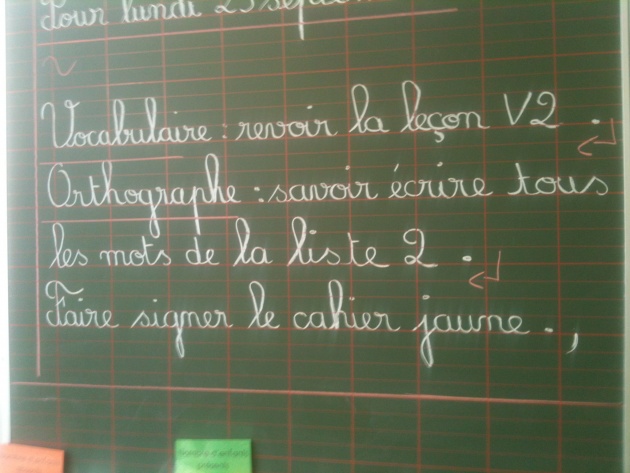 Pour lundi 23
Vocabulaire : revoir la leçon V2 .
Orthographe : savoir écrire tous
les mots de la liste 2 .
Faire signer le cahier jaune .